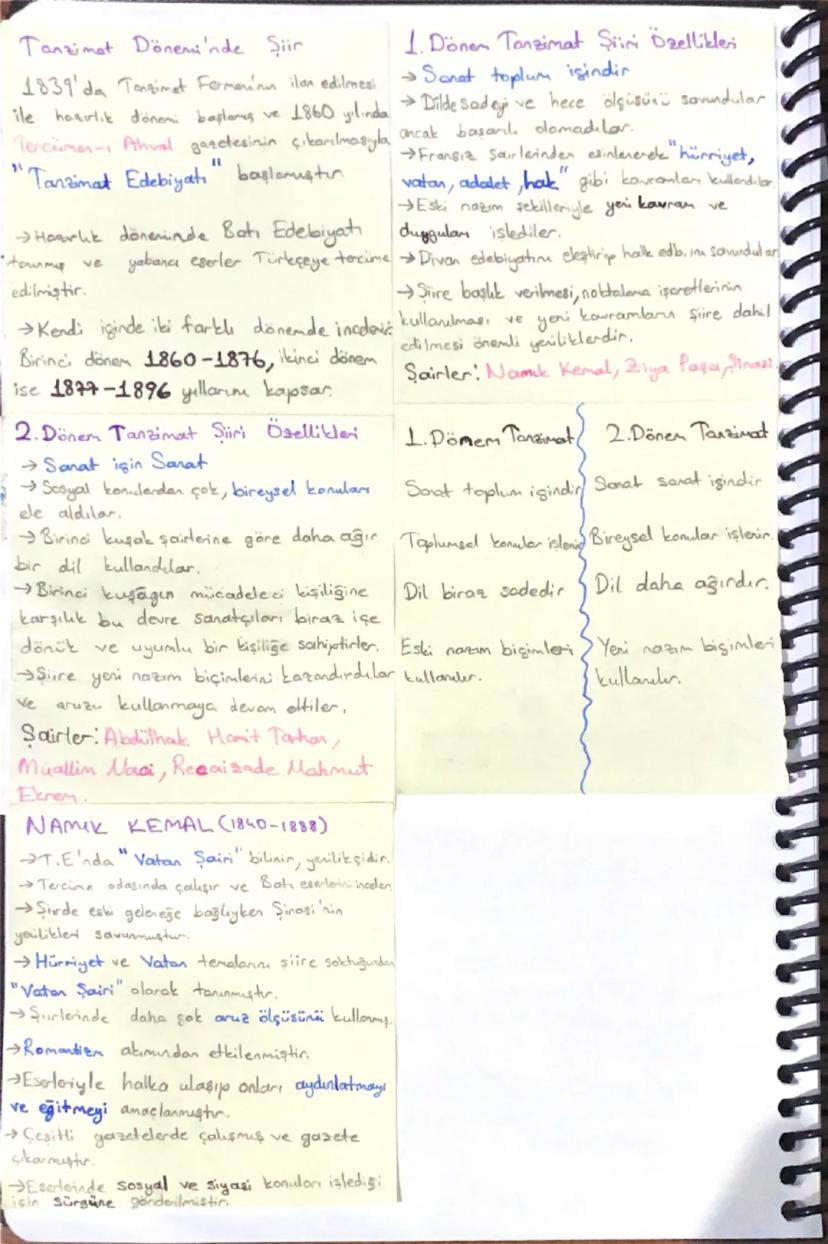 Tanzimat Dönemi'nde Şiir
1839'da Tanzimat Fermanı'nın ilan edilmesi
ile hazırlık dönemi başlamış ve 1860 yılında
Tercüman-ı Ahval gazetesinin çıkarılmasıyla
"Tanzimat Edebiyatı" başlamıştır.
→Hazırlık döneminde Batı Edebiyatı
tanınmış ve yabancı eserler Türkçeye tercüme
edilmiştir.
→Kendi içinde iki farklı dönemde incelenir.
Birinci dönem 1860-1876, ikinci dönem
ise 1877-1896 yıllarını kapsar.
1. Dönem Tanzimat Şiiri Özellikleri
→Sanat toplum içindir
→Dilde sadeyi ve hece ölçüsünü savundular
ancak başarılı olamadılar.
→Fransız şairlerinden esinlenerek "hürriyet,
vatan, adalet, hak" gibi kavramları kullandılar.
→Eski nazım şekilleriyle yeni kavram ve
duyguları işlediler.
→Divan edebiyatını eleştirip halk edb.ını savundular
→Şiire başlık verilmesi, noktalama işaretlerinin
kullanılması ve yeni kavramların şiire dahil
edilmesi önemli yeniliklerdir.
Şairler: Namık Kemal, Ziya Paşa, Şinasi
2. Dönem Tanzimat Şiiri Özellikleri
→Sanat için Sanat
→Sosyal konulardan çok, bireysel konuları
ele aldılar.
→Birinci kuşak şairlerine göre daha ağır
bir dil kullandılar.
→Birinci kuşağın mücadeleci kişiliğine
karşılık bu devre sanatçıları biraz içe
dönük ve uyumlu bir kişiliğe sahiptirler.
→Şiire yeni nazım biçimlerini kazandırdılar
ve aruzu kullanmaya devam ettiler.
Şairler: Abdülhak Hamit Tarhan,
Muallim Naci, Recaizade Mahmut
Ekrem.
1. Dönem Tanzimat
Sanat toplum içindir
Toplumsal konular işlenir
Dil biraz sadedir
Eski nazım biçimleri
kullanılır.
2. Dönem Tanzimat
Sanat sanat içindir
Bireysel konular işlenir.
Dil daha ağırdır.
Yeni nazım biçimleri
kullanılır.
NAMIK KEMAL (1840-1888)
→T.E'nda "Vatan Şairi" bilinir, yenilikçidir.
→Tercüme odasında çalışır ve Batı eserlerini inceler
→Şiirde eski geleneğe bağlıyken Şinasi'nin
yenilikleri savunmuştur.
→Hürriyet ve Vatan temalarını şiire soktuğundan
"Vatan Şairi" olarak tanınmıştır.
→Şiirlerinde daha çok aruz ölçüsünü kullanmış.
→Romantizm akımından etkilenmiştir.
→Eserleriyle halka ulaşıp onları aydınlatmayı
ve eğitmeyi amaçlanmıştır.
→Çeşitli gazetelerde çalışmış ve gazete
çıkarmıştır.
→Eserlerinde sosyal ve siyasi konuları işlediği
için sürgüne gönderilmiştir.